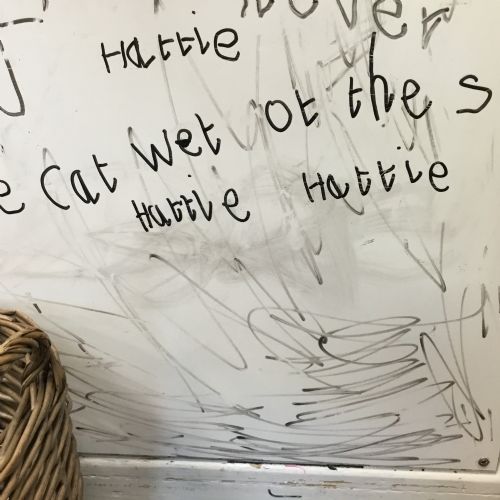 Hattie
e cat wet ot the s
Hattie Hattie